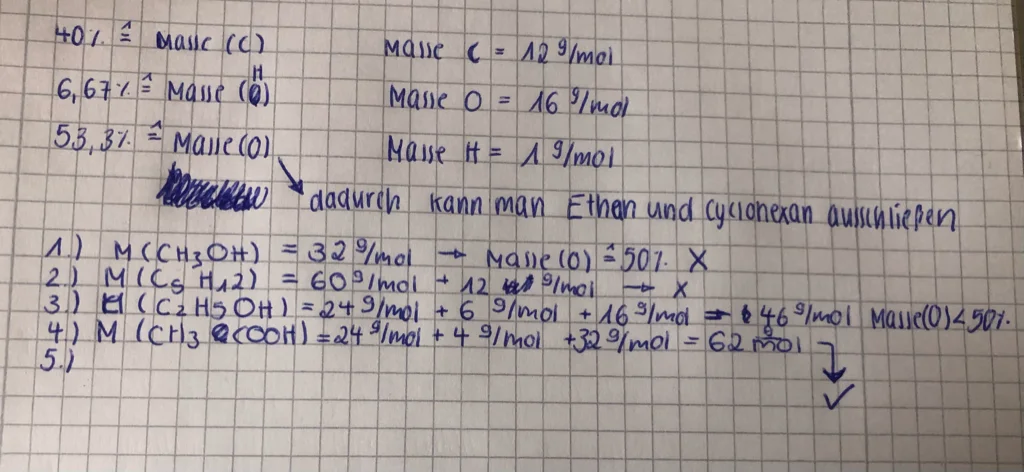 40% ≙ Masse (C) Masse C = 12 g/mol
6,67% ≙ Masse (H) Masse O = 16 g/mol
53,3% ≙ Masse(O) Masse H = 1 g/mol
dadurch kann man Ethen und cyclohexan ausschließen
1.) M(CH3OH) = 32 g/mol → Masse(O) ≙ 50% X
2.) M(C5 H12) = 60 g/mol + 12 g/mol → X
3) M (C2H5OH) = 24 g/mol + 6 g/mol + 16 g/mol = 46 g/mol Masse(O) < 50%
4) M (CH3 COOH) = 24 g/mol + 4 g/mol + 32 g/mol = 62 g/mol
5.) ✓